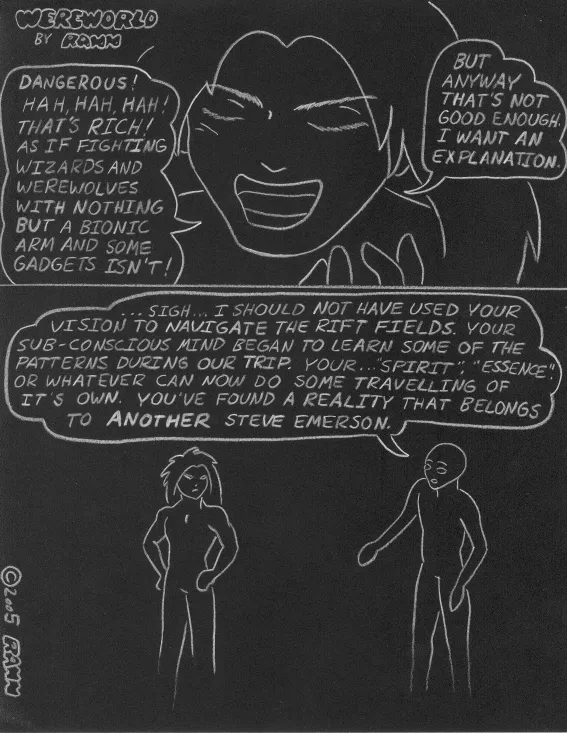 WEREWORLD
BY RAWN
DANGEROUS!
HAH, HAH, HAH!
THAT'S RICH!
AS IF FIGHTING
WIZARDS AND
WEREWOLVES
WITH NOTHING
BUT A BIONIC
ARM AND SOME
GADGETS ISN'T!
BUT
ANYWAY
THAT'S NOT
GOOD ENOUGH.
I WANT AN
EXPLANATION.
...SIGH... I SHOULD NOT HAVE USED YOUR
VISION TO NAVIGATE THE RIFT FIELDS. YOUR
SUB-CONSCIOUS MIND BEGAN TO LEARN SOME OF THE
PATTERNS DURING OUR TRIP. YOUR... "SPIRIT", "ESSENCE",
OR WHATEVER CAN NOW DO SOME TRAVELLING OF
IT'S OWN. YOU'VE FOUND A REALITY THAT BELONGS
TO ANOTHER STEVE EMERSON.
©2005 RAWN